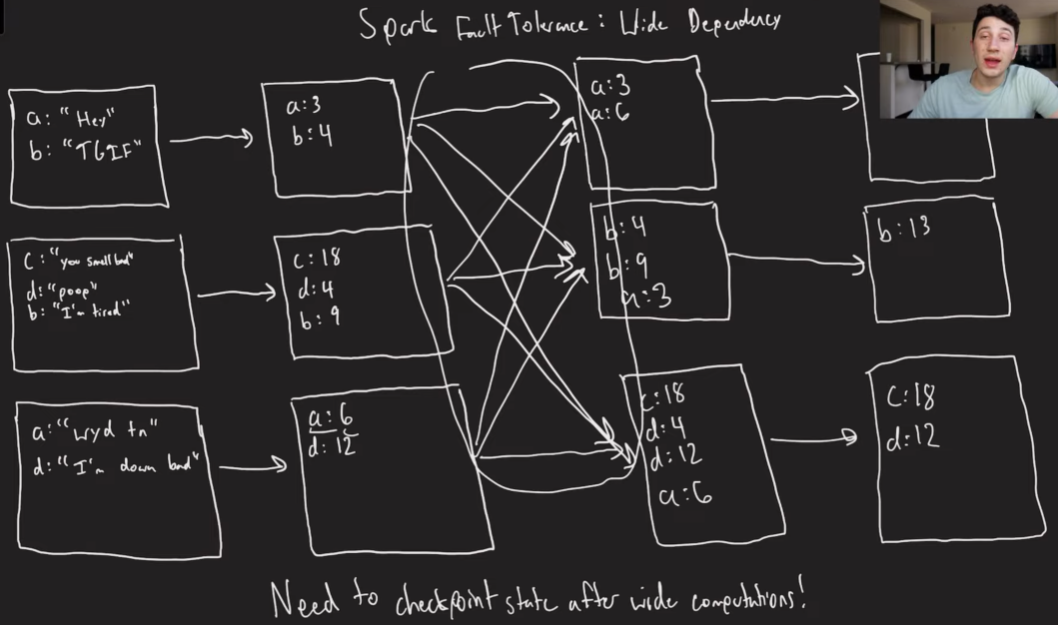 Spark Fault Tolerance: Wide Dependency
a: "Hey"
b: "TGIF"
c: "you smell bad"
d: "poop"
b: "I'm tired"
a: "wyd tn"
d: "I'm down bad"
a:3
b:4
c:18
d:4
b:9
a:6
d:12
a:3
a:6
b:4
b:9
a:3
c:18
d:4
d:12
a:6
b:13
c:18
d:12
Need to checkpoint state after wide computations!